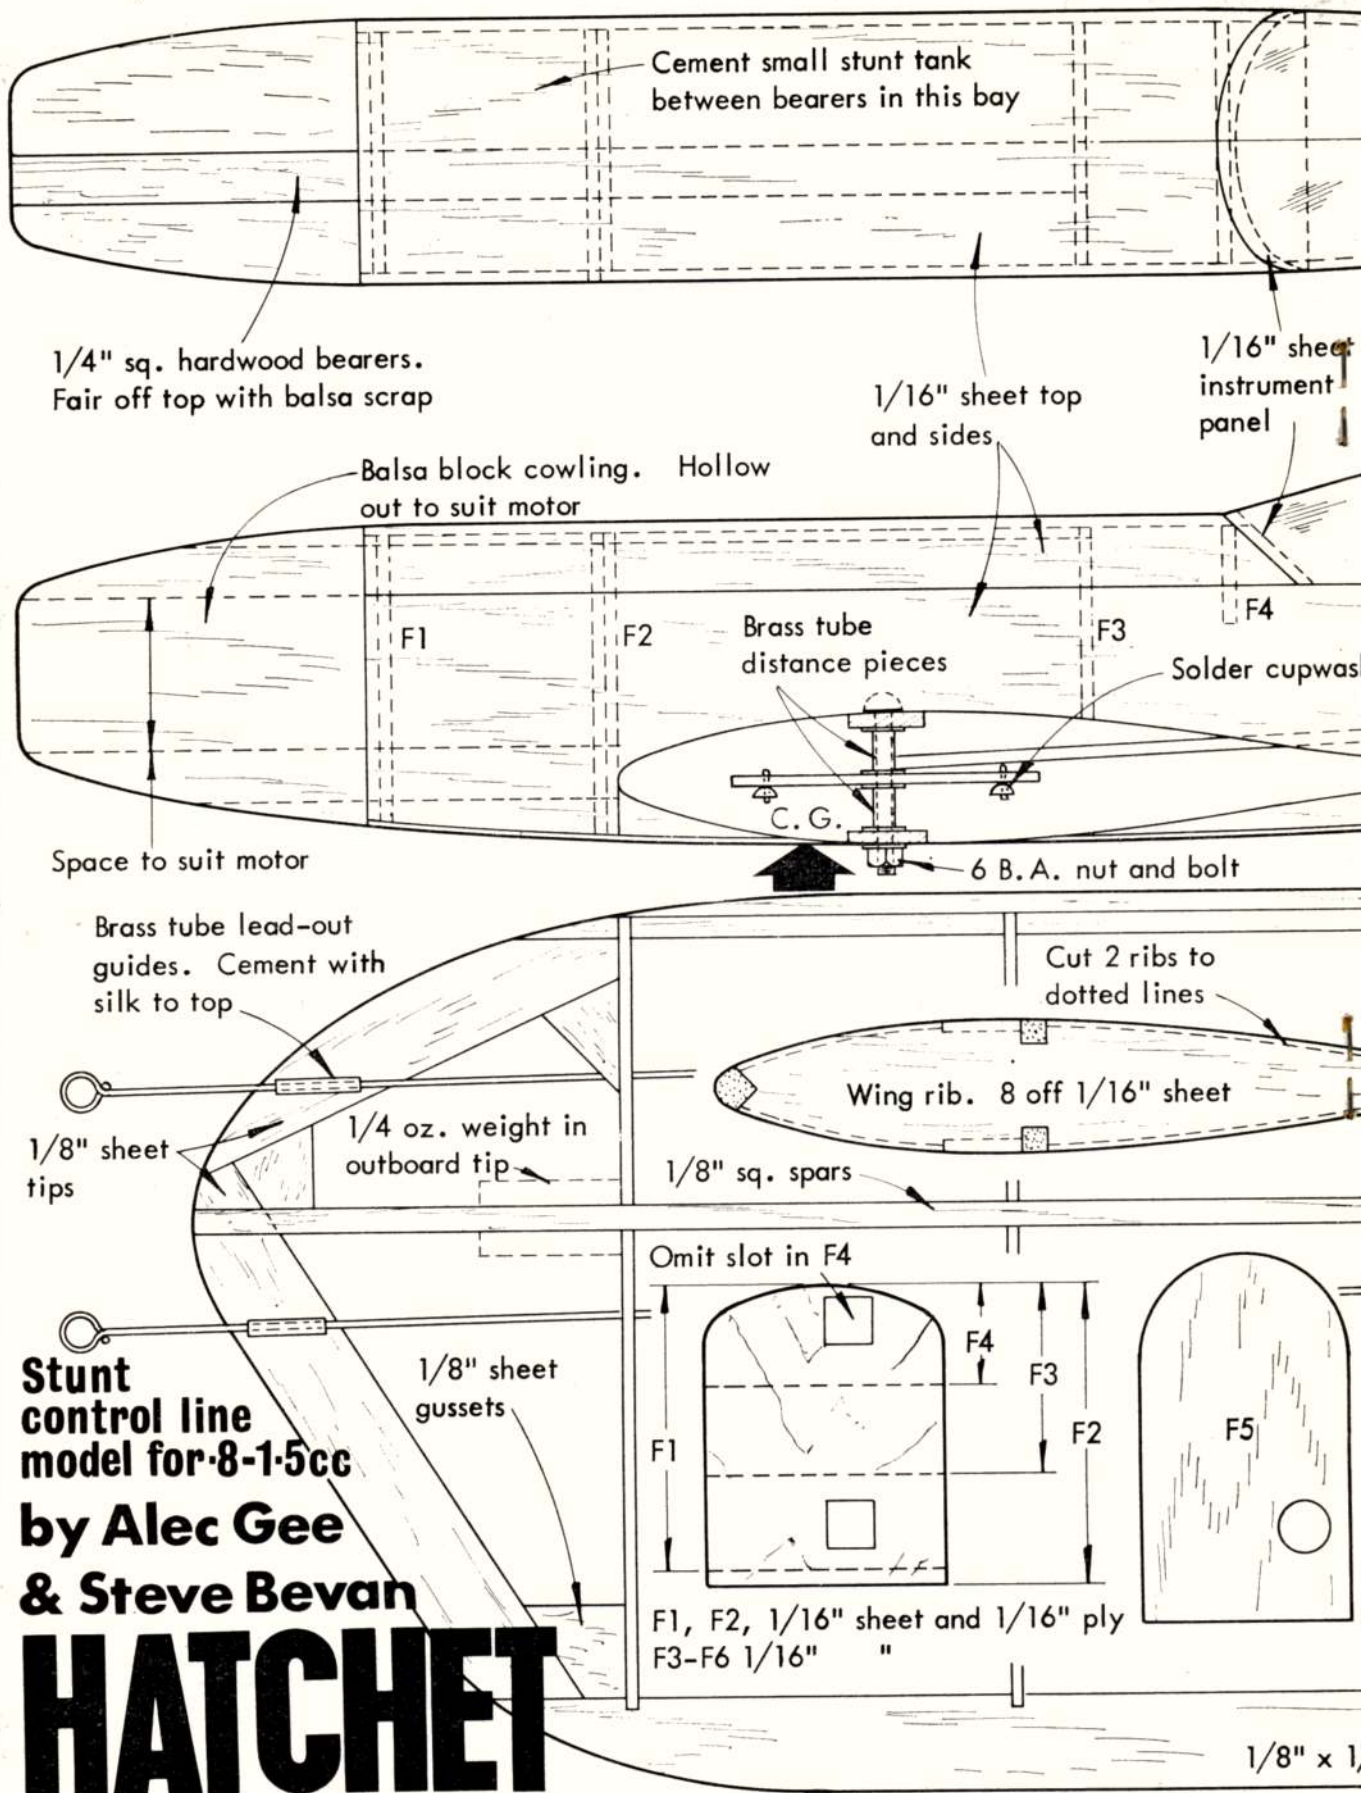 Cement small stunt tank
between bearers in this bay
1/4" sq. hardwood bearers.
Fair off top with balsa scrap
1/16" sheet top
and sides
1/16" sheet
instrument
panel
Balsa block cowling. Hollow
out to suit motor
F1
F2
F3
F4
Brass tube
distance pieces
Solder cupwas
C.G.
6 B.A. nut and bolt
Space to suit motor
Brass tube lead-out
guides. Cement with
silk to top
Cut 2 ribs to
dotted lines
Wing rib. 8 off 1/16" sheet
1/8" sheet
tips
1/4 oz. weight in
outboard tip
1/8" sq. spars
Omit slot in F4
F4
F3
F1
F2
F5
1/8" sheet
gussets
F1, F2, 1/16" sheet and 1/16" ply
F3-F6 1/16" "
1/8" x 1/
Stunt
control line
model for·8-1·5cc
by Alec Gee
& Steve Bevan
HATCHET